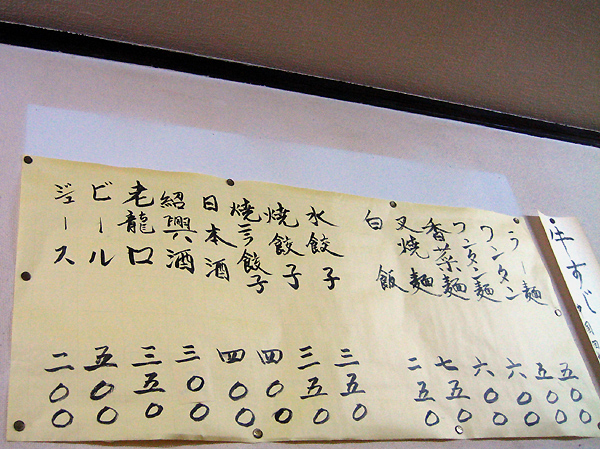 牛すじ
ラー麺。 五〇〇
ワンタン 五〇〇
ワンタン麺 六〇〇
香菜麺 六〇〇
叉焼麺 七五〇
白飯 二五〇
水餃子 三五〇
焼餃子 三五〇
焼ニラ餃子 四〇〇
日本酒 四〇〇
紹興酒 三〇〇
老龍口 三五〇
ビール 五〇〇
ジュース 二〇〇